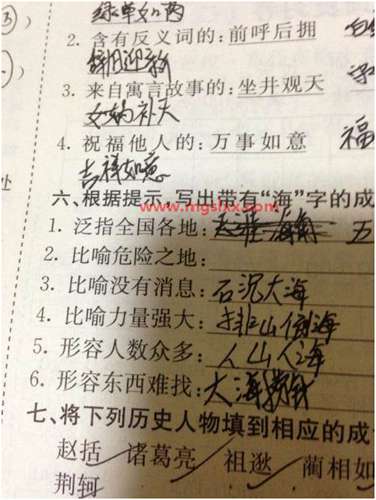 绿草如茵
2. 含有反义词的：前呼后拥
辞旧迎新
3. 来自寓言故事的：坐井观天
女娲补天
4. 祝福他人的：万事如意 福
吉祥如意
处
六、根据提示，写出带有“海”字的成
www.mgslxx.com
1. 泛指全国各地： 五
2. 比喻危险之地：
3. 比喻没有消息：石沉大海
4. 比喻力量强大：排山倒海
5. 形容人数众多：人山人海
6. 形容东西难找：大海捞针
七、将下列历史人物填到相应的成
赵括 诸葛亮 祖逖 蔺相如
荆轲